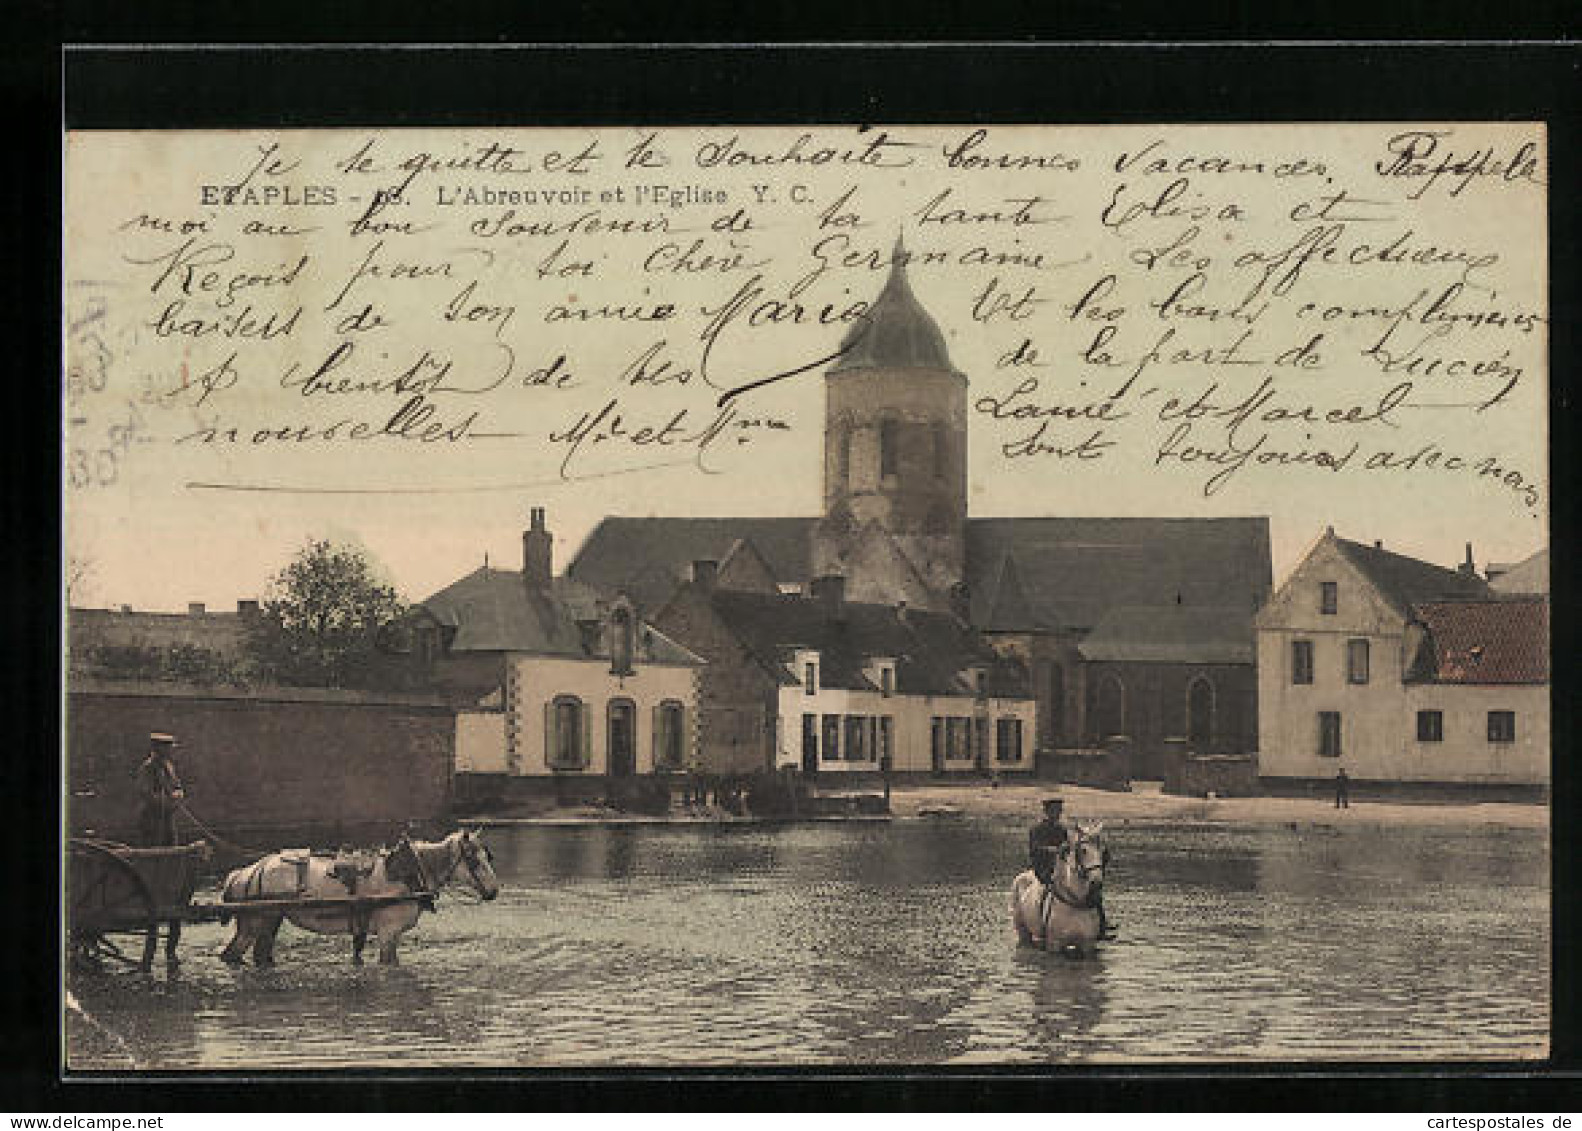 Je te quitte et te souhaite bonnes vacances. Rappelle
ETAPLES - L'Abreuvoir et l'Eglise Y. C.
moi au bon souvenir de ta tante Elisa et
Reçois pour toi Chère Germaine Les affectueux
baisers de ton amie Maria
A bientôt de tes
nouvelles Mr et Mme
Et les bons compliments
de la part de Lucien
Lainé et Marcel
sont toujours avec nous
cartespostales de